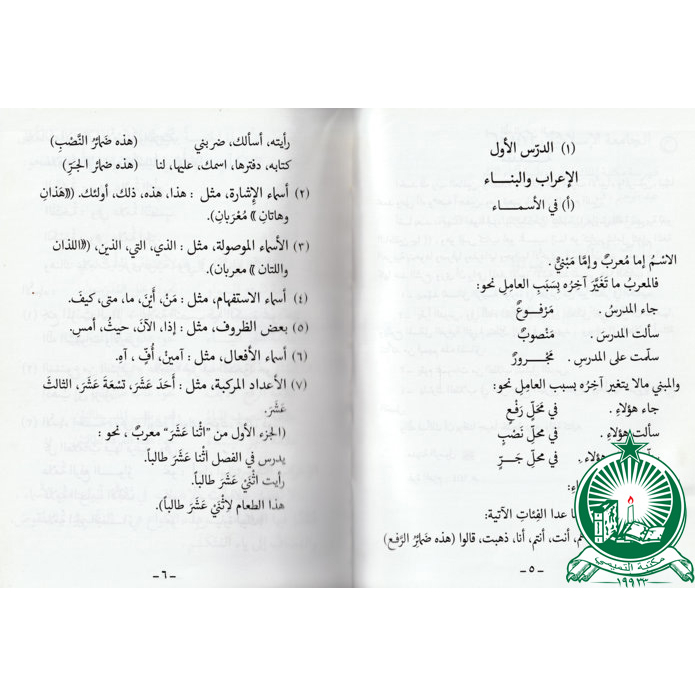 (١) الدرس الأول
الإعراب والبنـــاء
(أ) في الأسمـــاء
الاسْمُ إما مُعربٌ وإمَّا مَبْنيٌّ .
فالمعربُ ما تَغَيَّرَ آخِرُه بِسَبَبِ العامِلِ نحو:
جاء المدرسُ . مَرْفوعٌ
سألت المدرسَ . مَنْصوبٌ
سلّمت على المدرسِ . مَجْـرورٌ
والمبني مالا يتغير آخِرُه بسبب العاملِ نحو:
جاء هؤلاءِ . في مَحَلِّ رَفْعٍ
سألت هؤلاءِ . في محلِّ نَصْبٍ
هؤلاءِ . في محلِّ جَــرٍّ
عدا الفِئاتِ الآتية:
أنت، أنتم، أنا، ذهبت، قالوا (هذه ضَمائِرُ الرَّفع)
ـ ٥ ـ
رأيته، أسألك، ضربني (هذه ضَمائرُ النَّصْبِ)
كتابه، دفترها، اسمك، عليها، لنا (هذه ضَمائرُ الجَرِّ)
(٢) أسماء الإشارة، مثل : هذا، هذه، ذلك، أولئك. ((هَذَانِ
وهاتانِ )) مُعْرَبَانِ).
(٣) الأسماء الموصولة، مثل : الذي، التي، الذين، ((اللذان
واللتان )) معربان).
(٤) أسماء الاستفهام، مثل : مَنْ، أَيْنَ، ما، متى، كيفَ.
(٥) بعض الظروف، مثل : إذا، الآنَ، حيثُ، أمسِ.
(٦) أسماء الأفعال، مثل : آمينَ، أُفٍّ ، آهِ.
(٧) الأعداد المركبة، مثل : أَحَدَ عَشَرَ، تسْعَةَ عَشَرَ، الثالثَ
عَشَرَ.
(الجزء الأول من ”اثْنا عَشَرَ“ معربٌ ، نحو :
يدرس في الفصل اثْنا عَشَرَ طالباً.
رأيت اثْنَيْ عَشَرَ طالباً.
هذا الطعام لاِثْنَيْ عَشَرَ طالباً).
ـ ٦ ـ
مكتبة التميمي
١٩٩٣